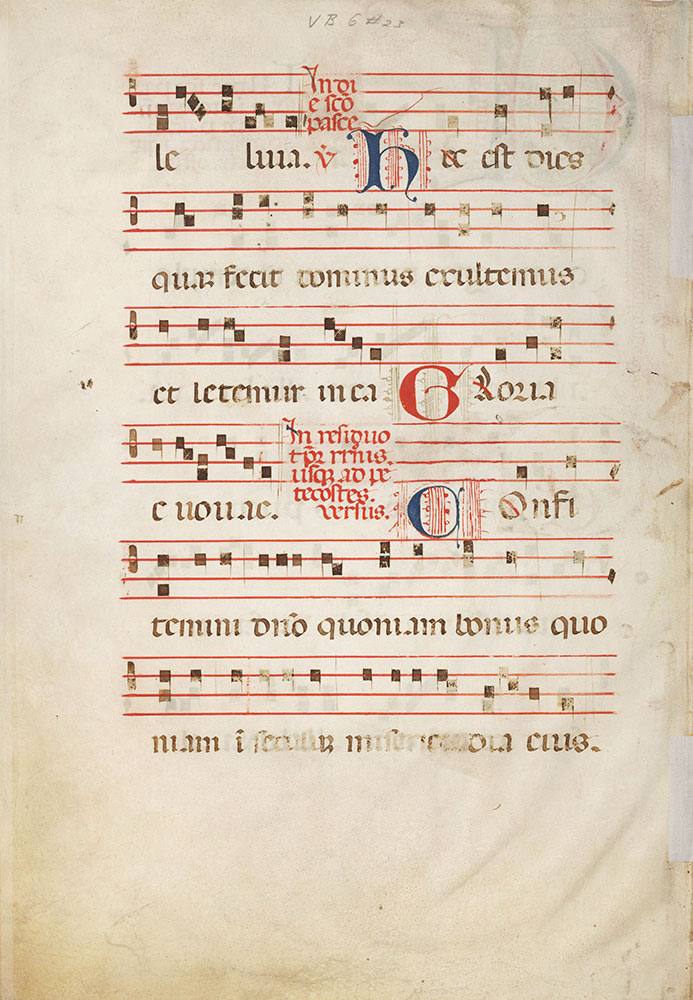 VB 6 #23
In di
e scō
pasce
le luia. ℣ Hec est dies
quam fecit dominus exultemus
et letemur in ea Gloria
In residuo
usque ad pe
tecostes.
versus.
e uouae. Confi
temini dn̄o quoniam bonus quo
niam ī seculum misericordia eius.